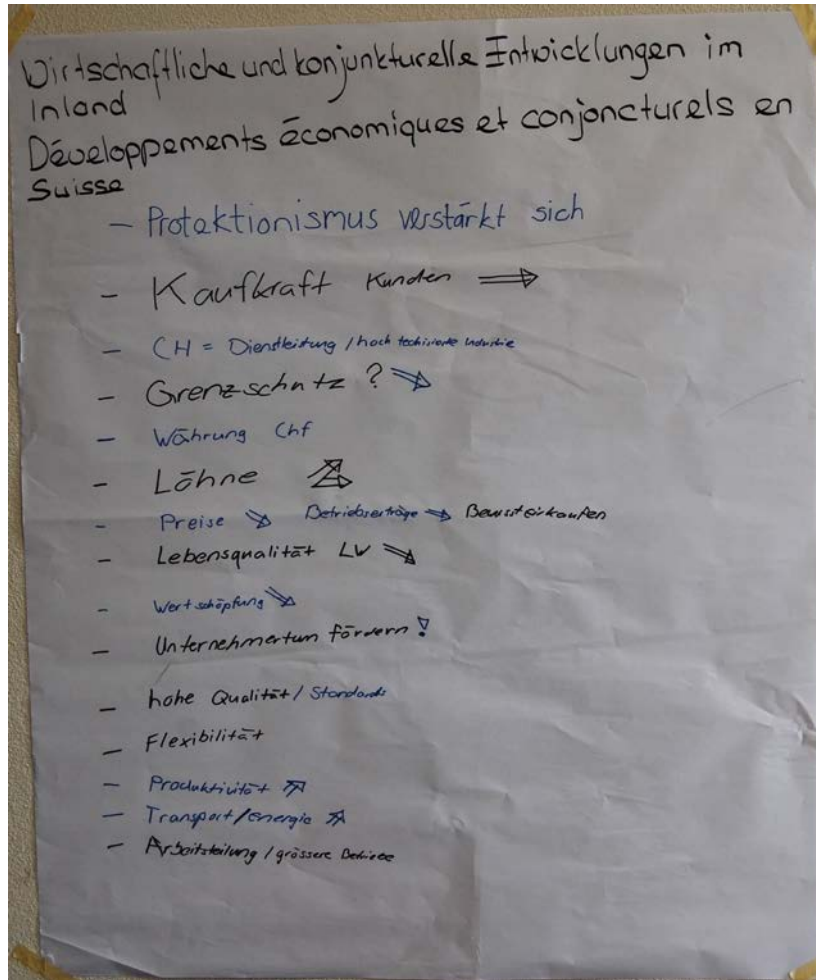 Wirtschaftliche und konjunkturelle Entwicklungen im
Inland
Développements économiques et conjoncturels en
Suisse
- Protektionismus verstärkt sich
- Kaufkraft Kunden ⇒
- CH = Dienstleistung / hoch techisierte Industrie
- Grenzschutz ? ⇘
- Währung Chf
- Löhne ⇗⇘
- Preise ⇘ Betriebserträge ⇒ Bewusst einkaufen
- Lebensqualität LW ⇘
- Wertschöpfung ⇘
- Unternehmertum fördern !
- hohe Qualität / Standards
- Flexibilität
- Produktivität ⇗
- Transport/energie ⇗
- Arbeitsteilung / grössere Betriebe